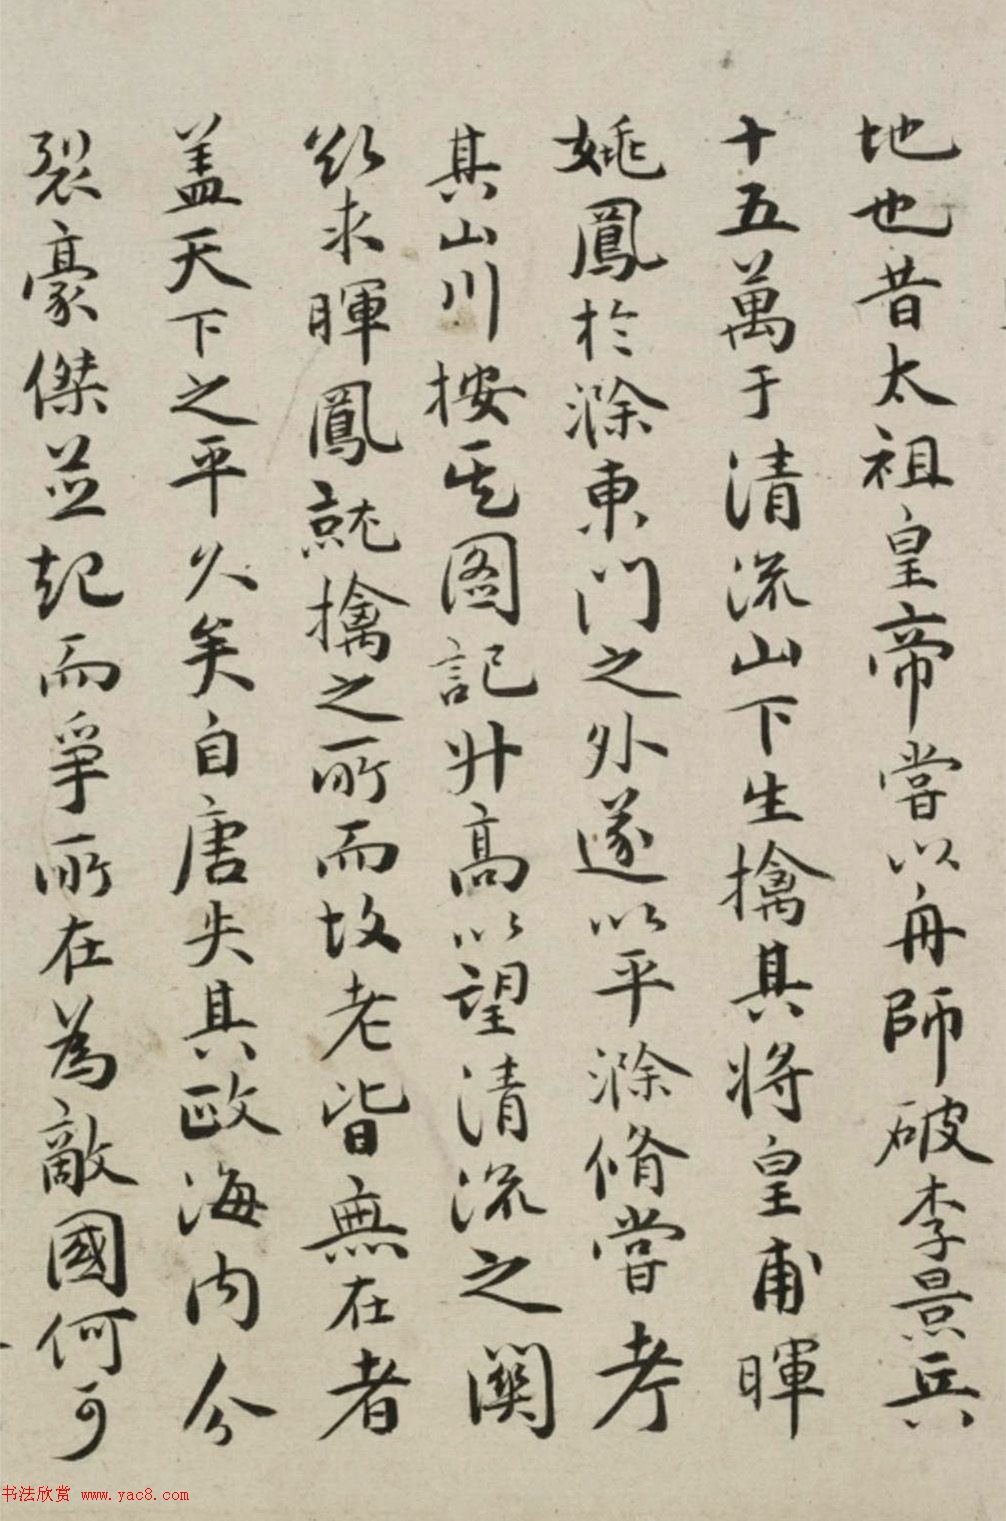 地也昔太祖皇帝嘗以舟師破李景兵
十五萬于清流山下生擒其將皇甫暉
姚鳳於滁東門之外遂以平滁脩嘗考
其山川按其圖記升高以望清流之關
欲求暉鳳就擒之所而故老皆無在者
盖天下之平久矣自唐失其政海内分
裂豪傑並起而爭所在為敵國何可
书法欣赏 www.yac8.com